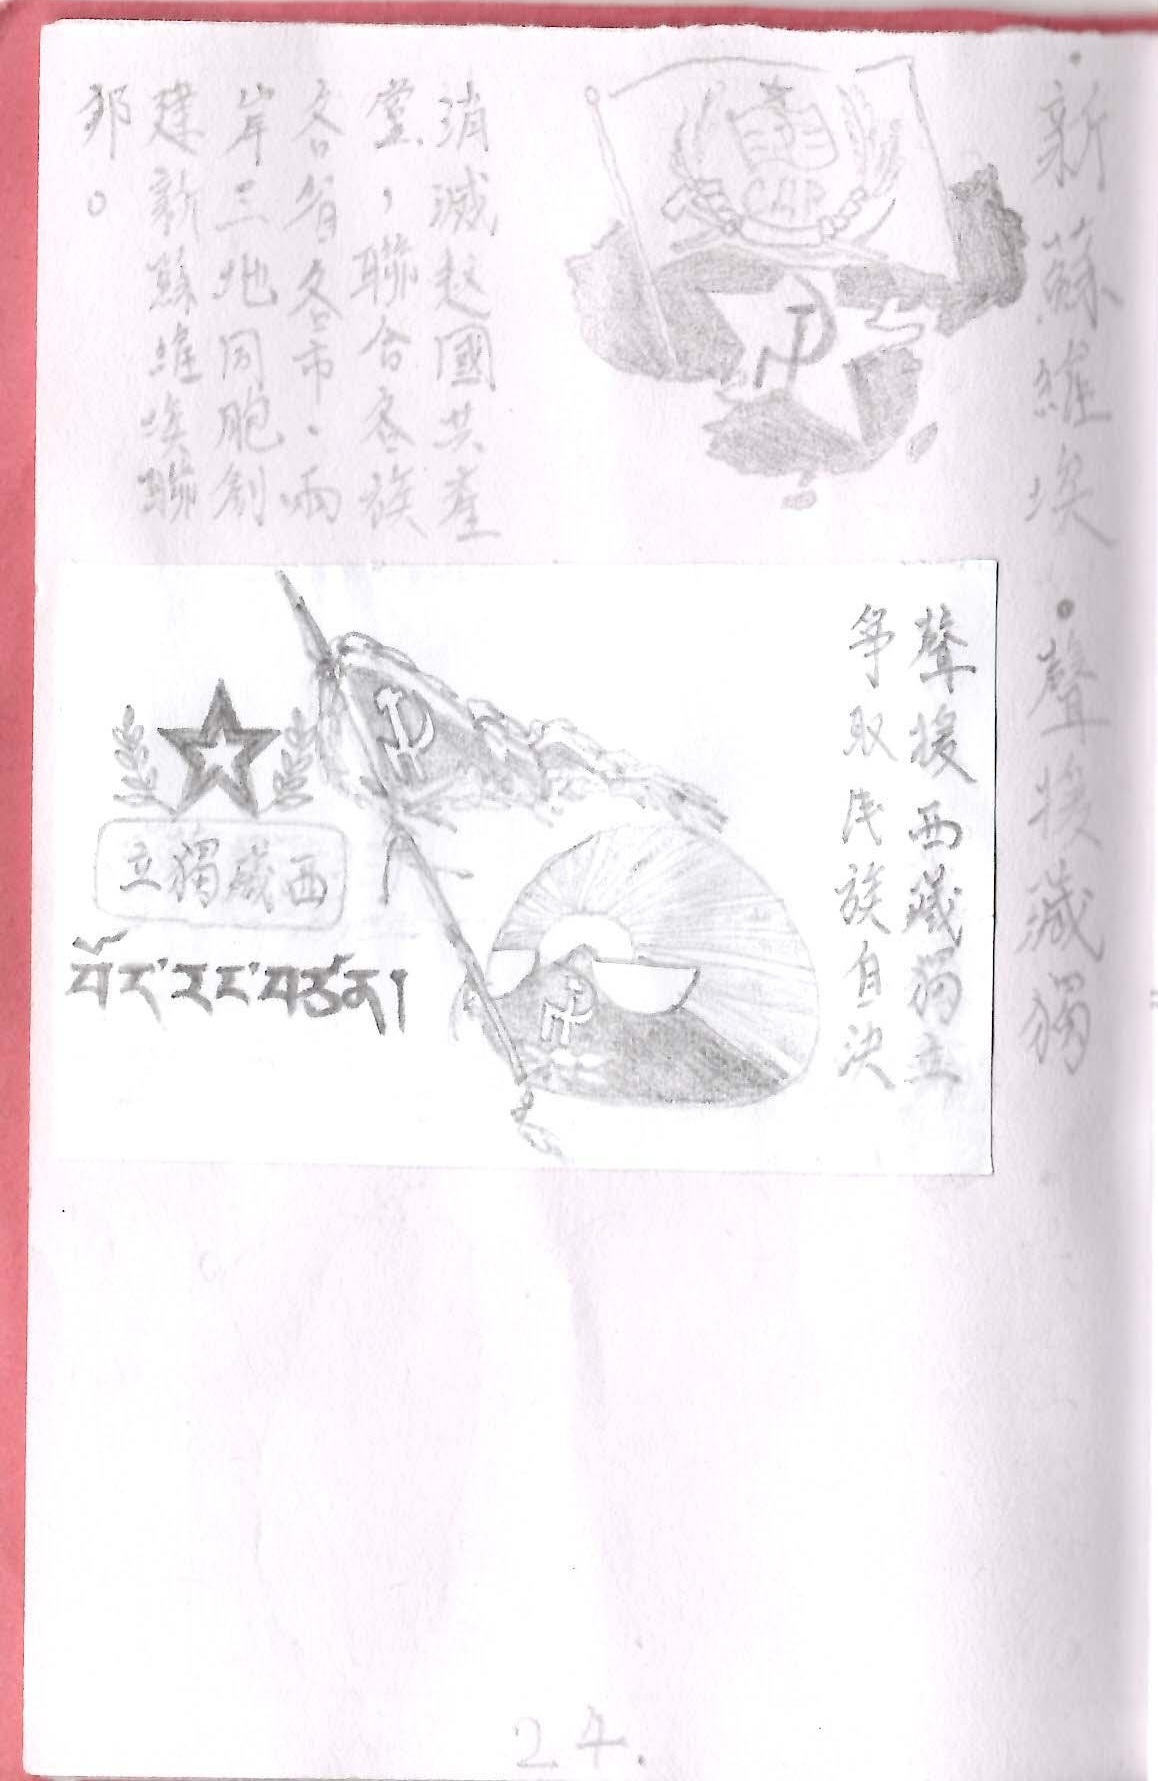 ·新蘇維埃·聲援藏獨
消滅赵國共產
黨，聯合各族
各省各市·兩
岸三地同胞創
建新蘇維埃聯
邦。
聲援西藏獨立
爭取民族自決
西藏獨立
བོད་རང་བཙན།
24.